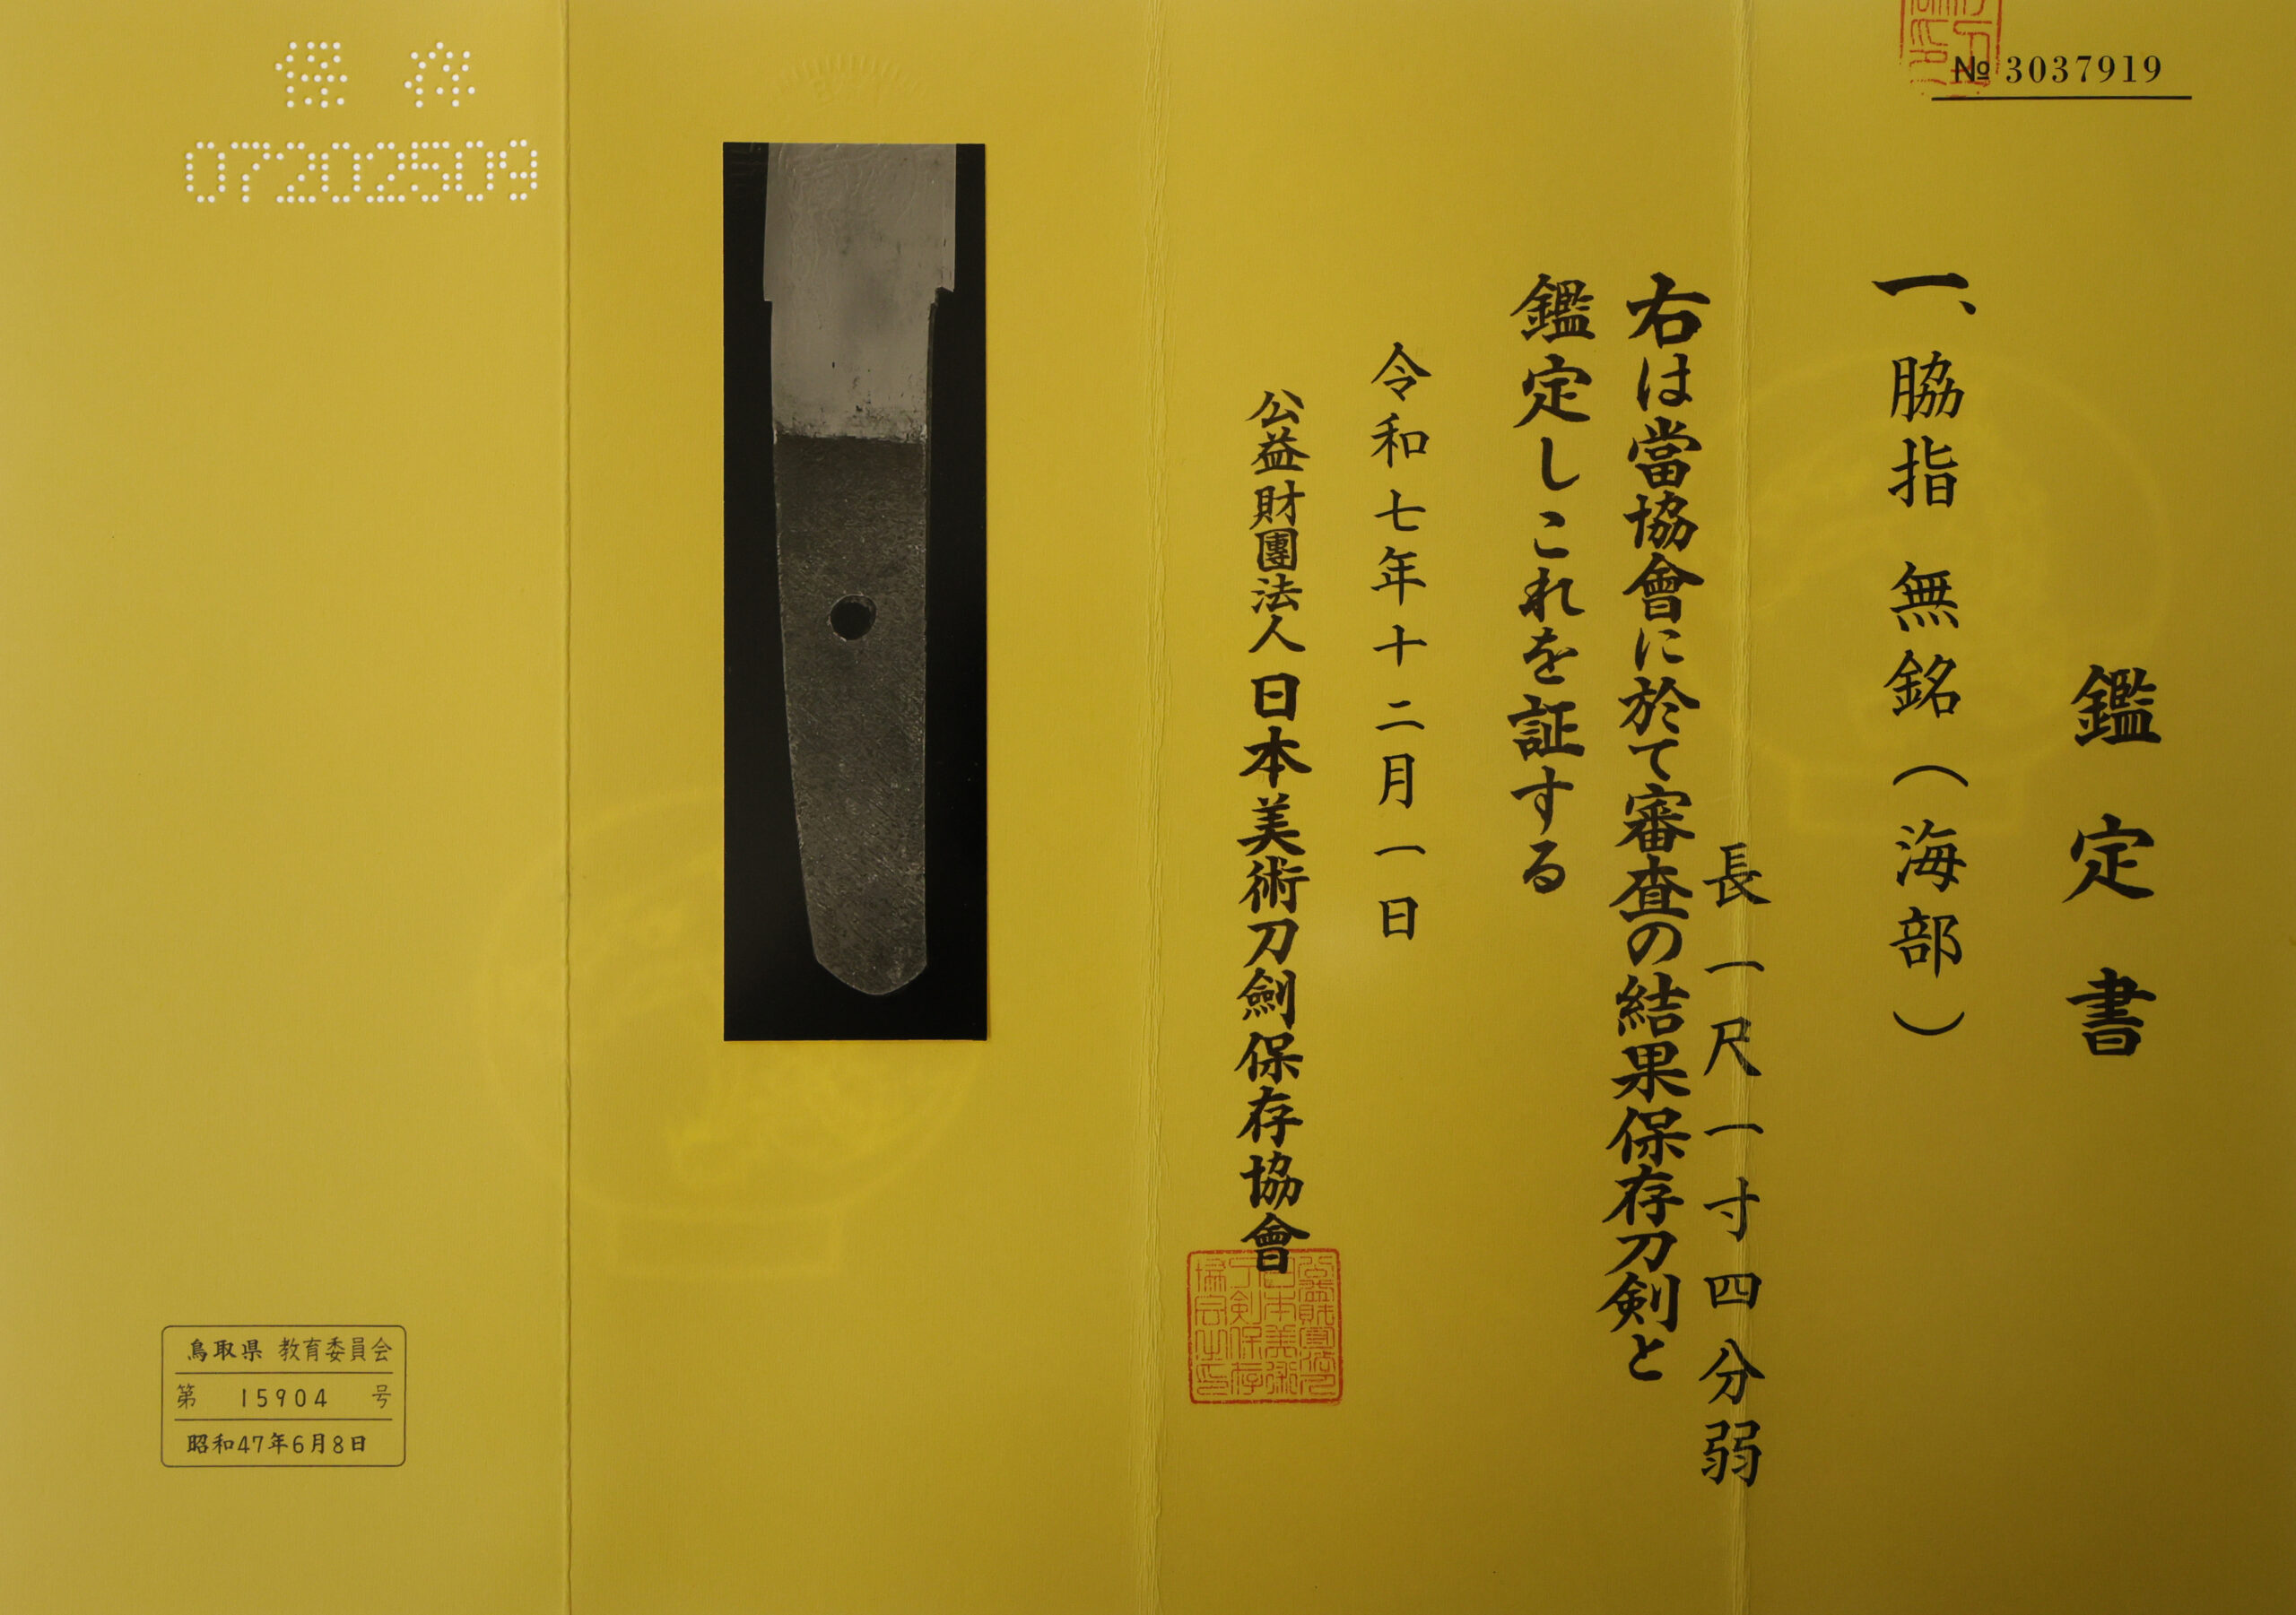 № 3037919
鑑定書
一、脇指 無銘（海部）
長一尺一寸四分弱
右は當協會に於て審査の結果保存刀剣と
鑑定しこれを証する
令和七年十二月一日
公益財團法人日本美術刀劍保存協會
保存
07202509
鳥取県 教育委員会
第 15904 号
昭和47年6月8日